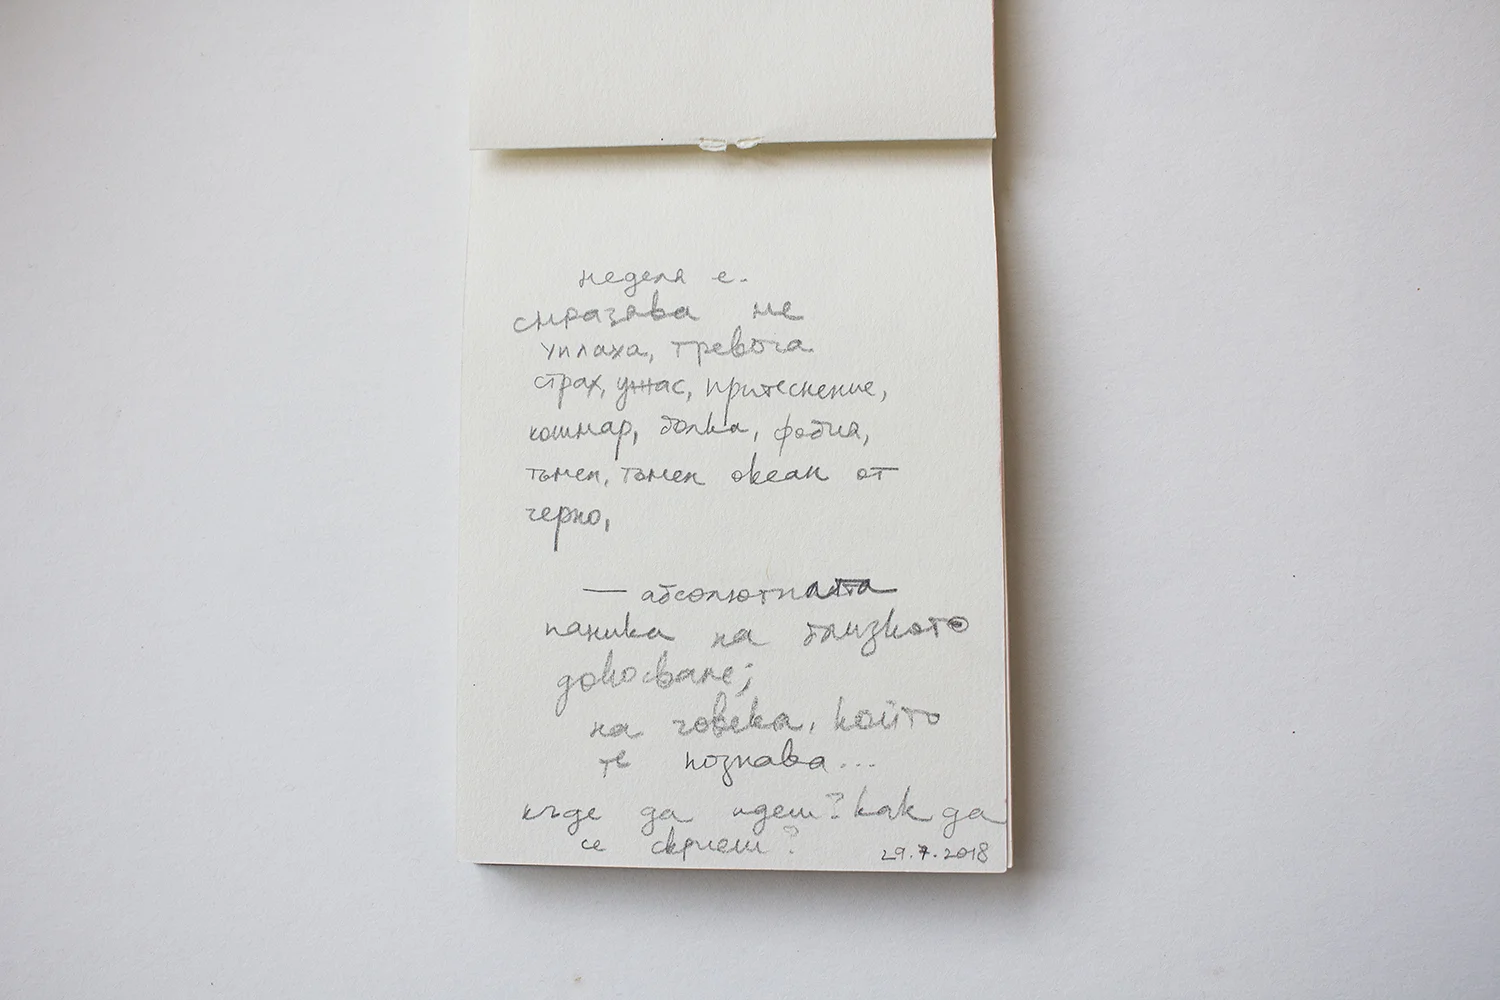 неделя е.
смразява ме
уплаха, тревога
страх, ужас, притеснение,
кошмар, болка, фобия,
тъмен, тъмен океан от
черно,
— абсолютната
паника на близкото
докосване;
на човека, който
те познава...
къде да идеш? как да
се скриеш?
29.7.2018